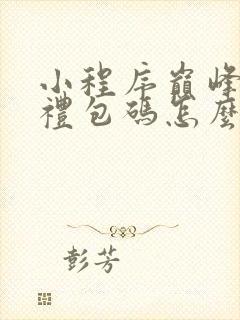 小程序巔峰
禮包碼怎麼
彭芳